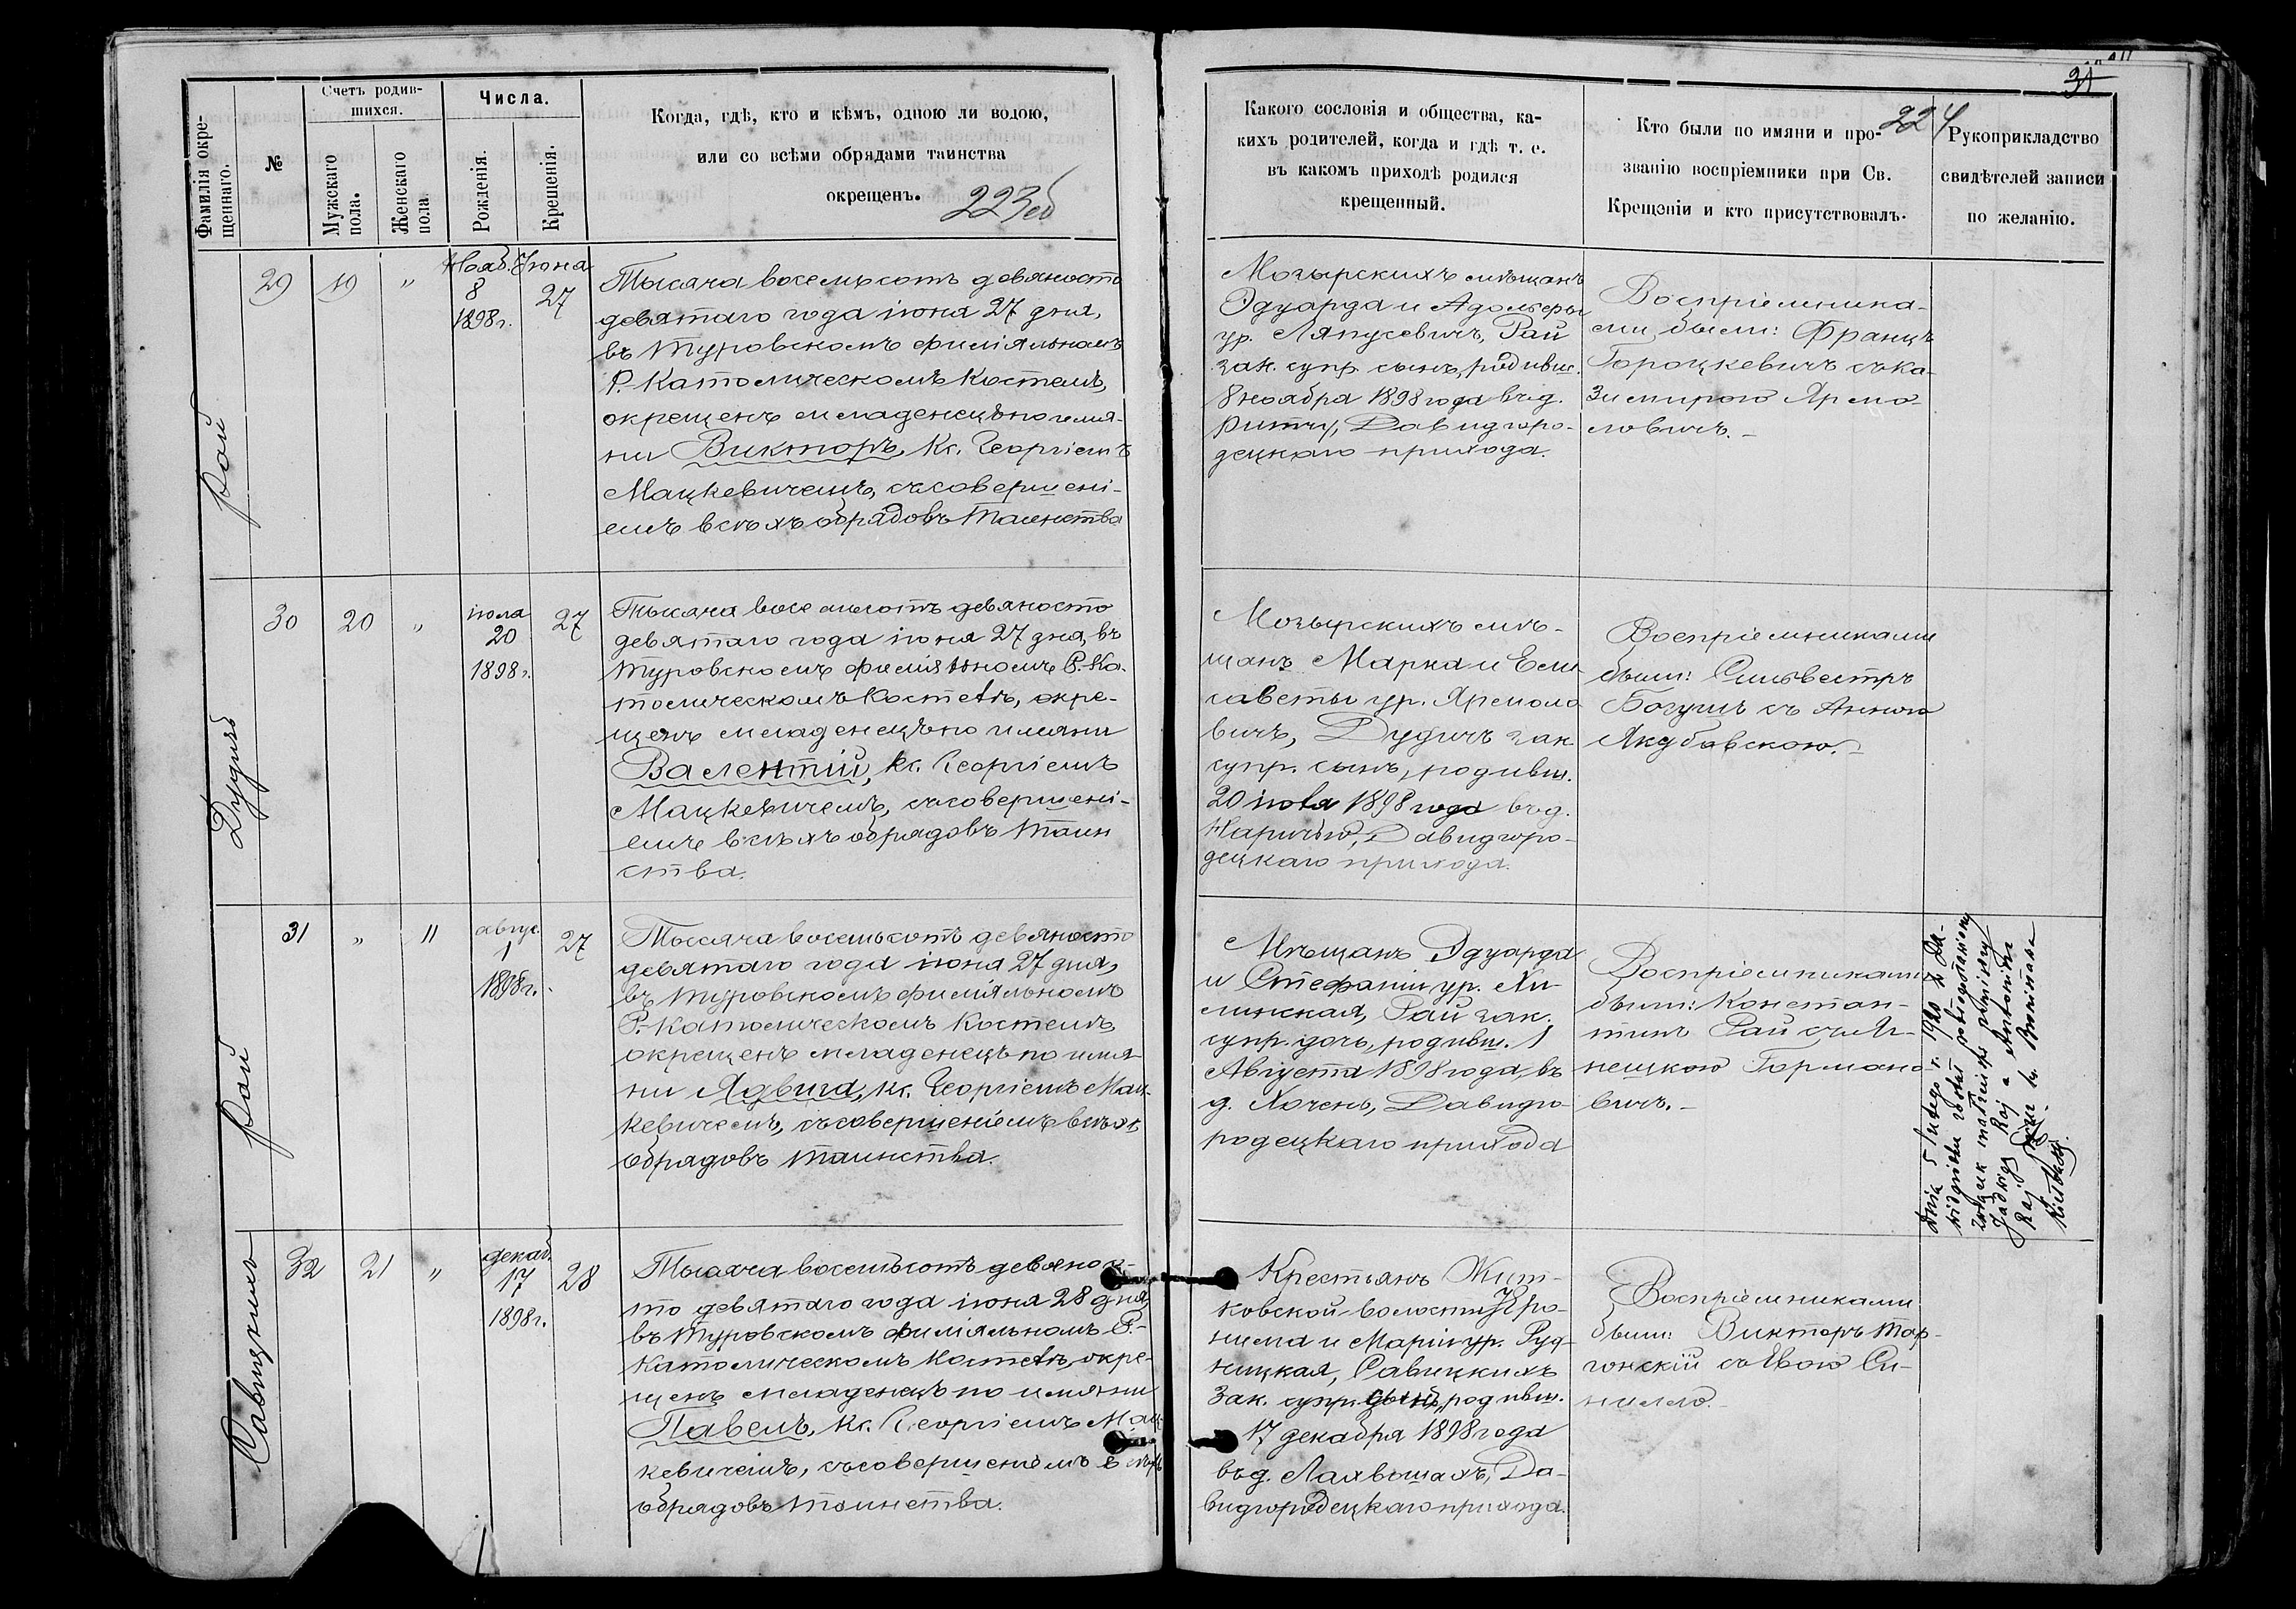 Фамилія окре-
щеннаго.
№
Счетъ родив-
шихся.
Мужскаго
пола.
Женскаго
пола.
Числа.
Рожденія.
Крещенія.
Когда, гдѣ, кто и кѣмъ, одною ли водою,
или со всѣми обрядами таинства
окрещенъ.
223об
Какого сословія и общества, ка-
кихъ родителей, когда и гдѣ т. е.
въ какомъ приходѣ родился
крещенный.
Кто были по имяни и про-
званію воспріемники при Св.
Крещеніи и кто присутствовалъ.
31
224
Рукоприкладство
свидѣтелей записи
по желанію.
Рай
29
19
"
Нояб.
8
1898 г.
Іюня
27
Тысяча восемьсотъ девяносто
девятаго года іюня 27 дня,
въ Туровскомъ филіяльномъ
Р. Католическомъ Костелѣ,
окрещенъ младенецъ по имя-
ни Викторъ, Кс. Георгіемъ
Мацкевичемъ, съ совершені-
емъ всѣхъ обрядовъ Таинства
Мозырскихъ мѣщанъ
Эдуарда и Адольфы
ур. Рай
зак. супр. сынъ, родивш.
8 ноября 1898 года въ д.
Давидгоро-
децкаго прихода.
Воспріемника-
ми были: Францъ
Гороцкевичъ съ Ка-
зимирою Ярмо-
ловичъ.
Дудичъ
30
20
"
іюля
20
1898 г.
27
Тысяча восемьсотъ девяносто
девятаго года іюня 27 дня, въ
Туровскомъ филіяльномъ Р. Ка-
толическомъ Костелѣ, окре-
щенъ младенецъ по имяни
Валентій, Кс. Георгіемъ
Мацкевичемъ, съ совершені-
емъ всѣхъ обрядовъ Таин
ства.
Мозырскихъ мѣ-
щанъ Марка и Ели-
саветы ур. Ярмоло
вичъ, Дудичъ зак.
супр. сынъ, родивш.
20 іюля 1898 года въ д.
Давидгоро-
децкаго прихода.
Воспріемниками
были: Сильвестръ
Богушъ съ Анною
Якубовскою.
Рай
31
"
11
август.
1
1898 г.
27
Тысяча восемьсотъ девяносто
девятаго года іюня 27 дня,
въ Туровскомъ филіяльномъ
Р.-Католическомъ Костелѣ,
окрещенъ младенецъ по имя-
ни Ядвига, Кс. Георгіемъ Мац-
кевичемъ, съ совершеніемъ всѣхъ
обрядовъ таинства.
Мѣщанъ Эдуарда
и Стефаніи ур.
Рай зак.
супр. дочь, родивш. 1
Августа 1898 года, въ
д. Хочень, Давидго-
родецкаго прихода
Воспріемниками
были: Констан-
тинъ Рай съ Аг-
нешкою Гормано-
вичъ.
Dnia 5 lutego r. 1920 z Da-
widgródku został pobłogosławiony
związek małżeński pomiędzy
Jadwigą Raj a Antonim
Raj
Савицкихъ
32
21
"
декаб.
17
1898 г.
28
Тысяча восемьсотъ девянос-
то девятаго года іюня 28 дня,
въ Туровскомъ филіяльномъ Р.-
Католическомъ Костелѣ, окре-
щенъ младенецъ по имяни
Павелъ, Кс. Георгіемъ Мац-
кевичемъ, съ совершеніемъ всѣхъ
обрядовъ таинства.
Крестьянъ Жит-
ковской волости Іеро-
нима и Маріи ур. Руд-
ницкая, Савицкихъ
зак. супр. сынъ, родивш.
17 декабря 1898 года
въ д. Ляховичахъ, Да-
видгородецкаго прихода.
Воспріемниками
были: Викторъ Тар-
гонскій съ Евою Си-
нилло.